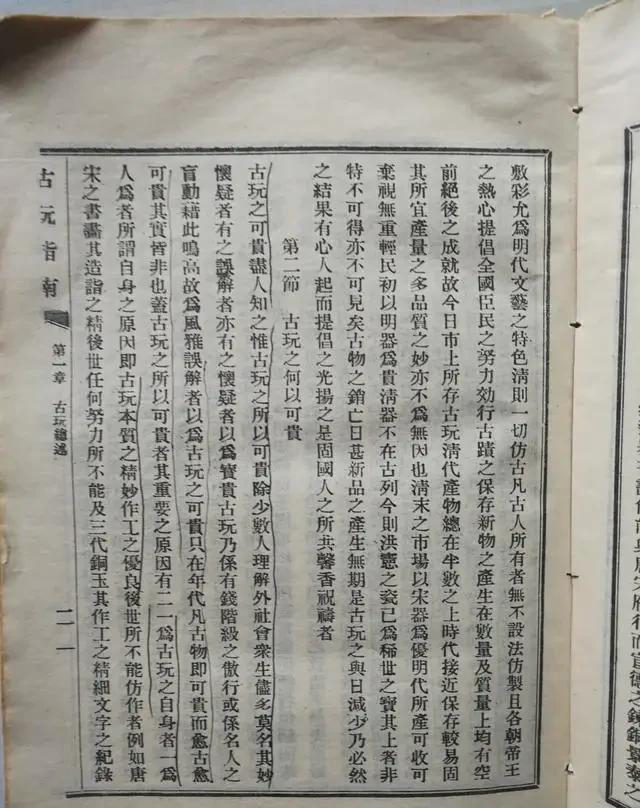 敷彩尤爲明代文藝之特色淸則一切仿古凡古人所有者無不設法仿製且各朝帝王
之熱心提倡全國臣民之努力効行古蹟之保存新物之產生在數量及質量上均有空
前絕後之成就故今日市上所存古玩淸代產物總在半數之上時代接近保存較易固
其所宜產量之多品質之妙亦不爲無因也淸末之市場以宋器爲優明代所產可收可
棄視無重輕民初以明器爲貴淸器不在古列今則洪憲之瓷已爲稀世之寶其上者非
特不可得亦不可見矣古物之銷亡日甚新品之產生無期是古玩之與日減少乃必然
之結果有心人起而提倡之光揚之是固國人之所共馨香祝禱者
第二節　古玩之何以可貴
古玩之可貴盡人知之惟古玩之所以可貴除少數人理解外社會衆生儘多莫名其妙
懷疑者有之誤解者亦有之懷疑者以爲寶貴古玩乃係有錢階級之傲行或係名人之
盲動藉此鳴高故爲風雅誤解者以爲古玩之可貴只在年代凡古物即可貴而愈古愈
可貴其實皆非也蓋古玩之所以可貴者其重要之原因有二一爲古玩之自身者一爲
人爲者所謂自身之原因即古玩本質之精妙作工之優良後世所不能仿作者例如唐
宋之書畫其造詣之精後世任何努力所不能及三代銅玉其作工之精細文字之紀錄
古玩指南
第一章　古玩總述
二一